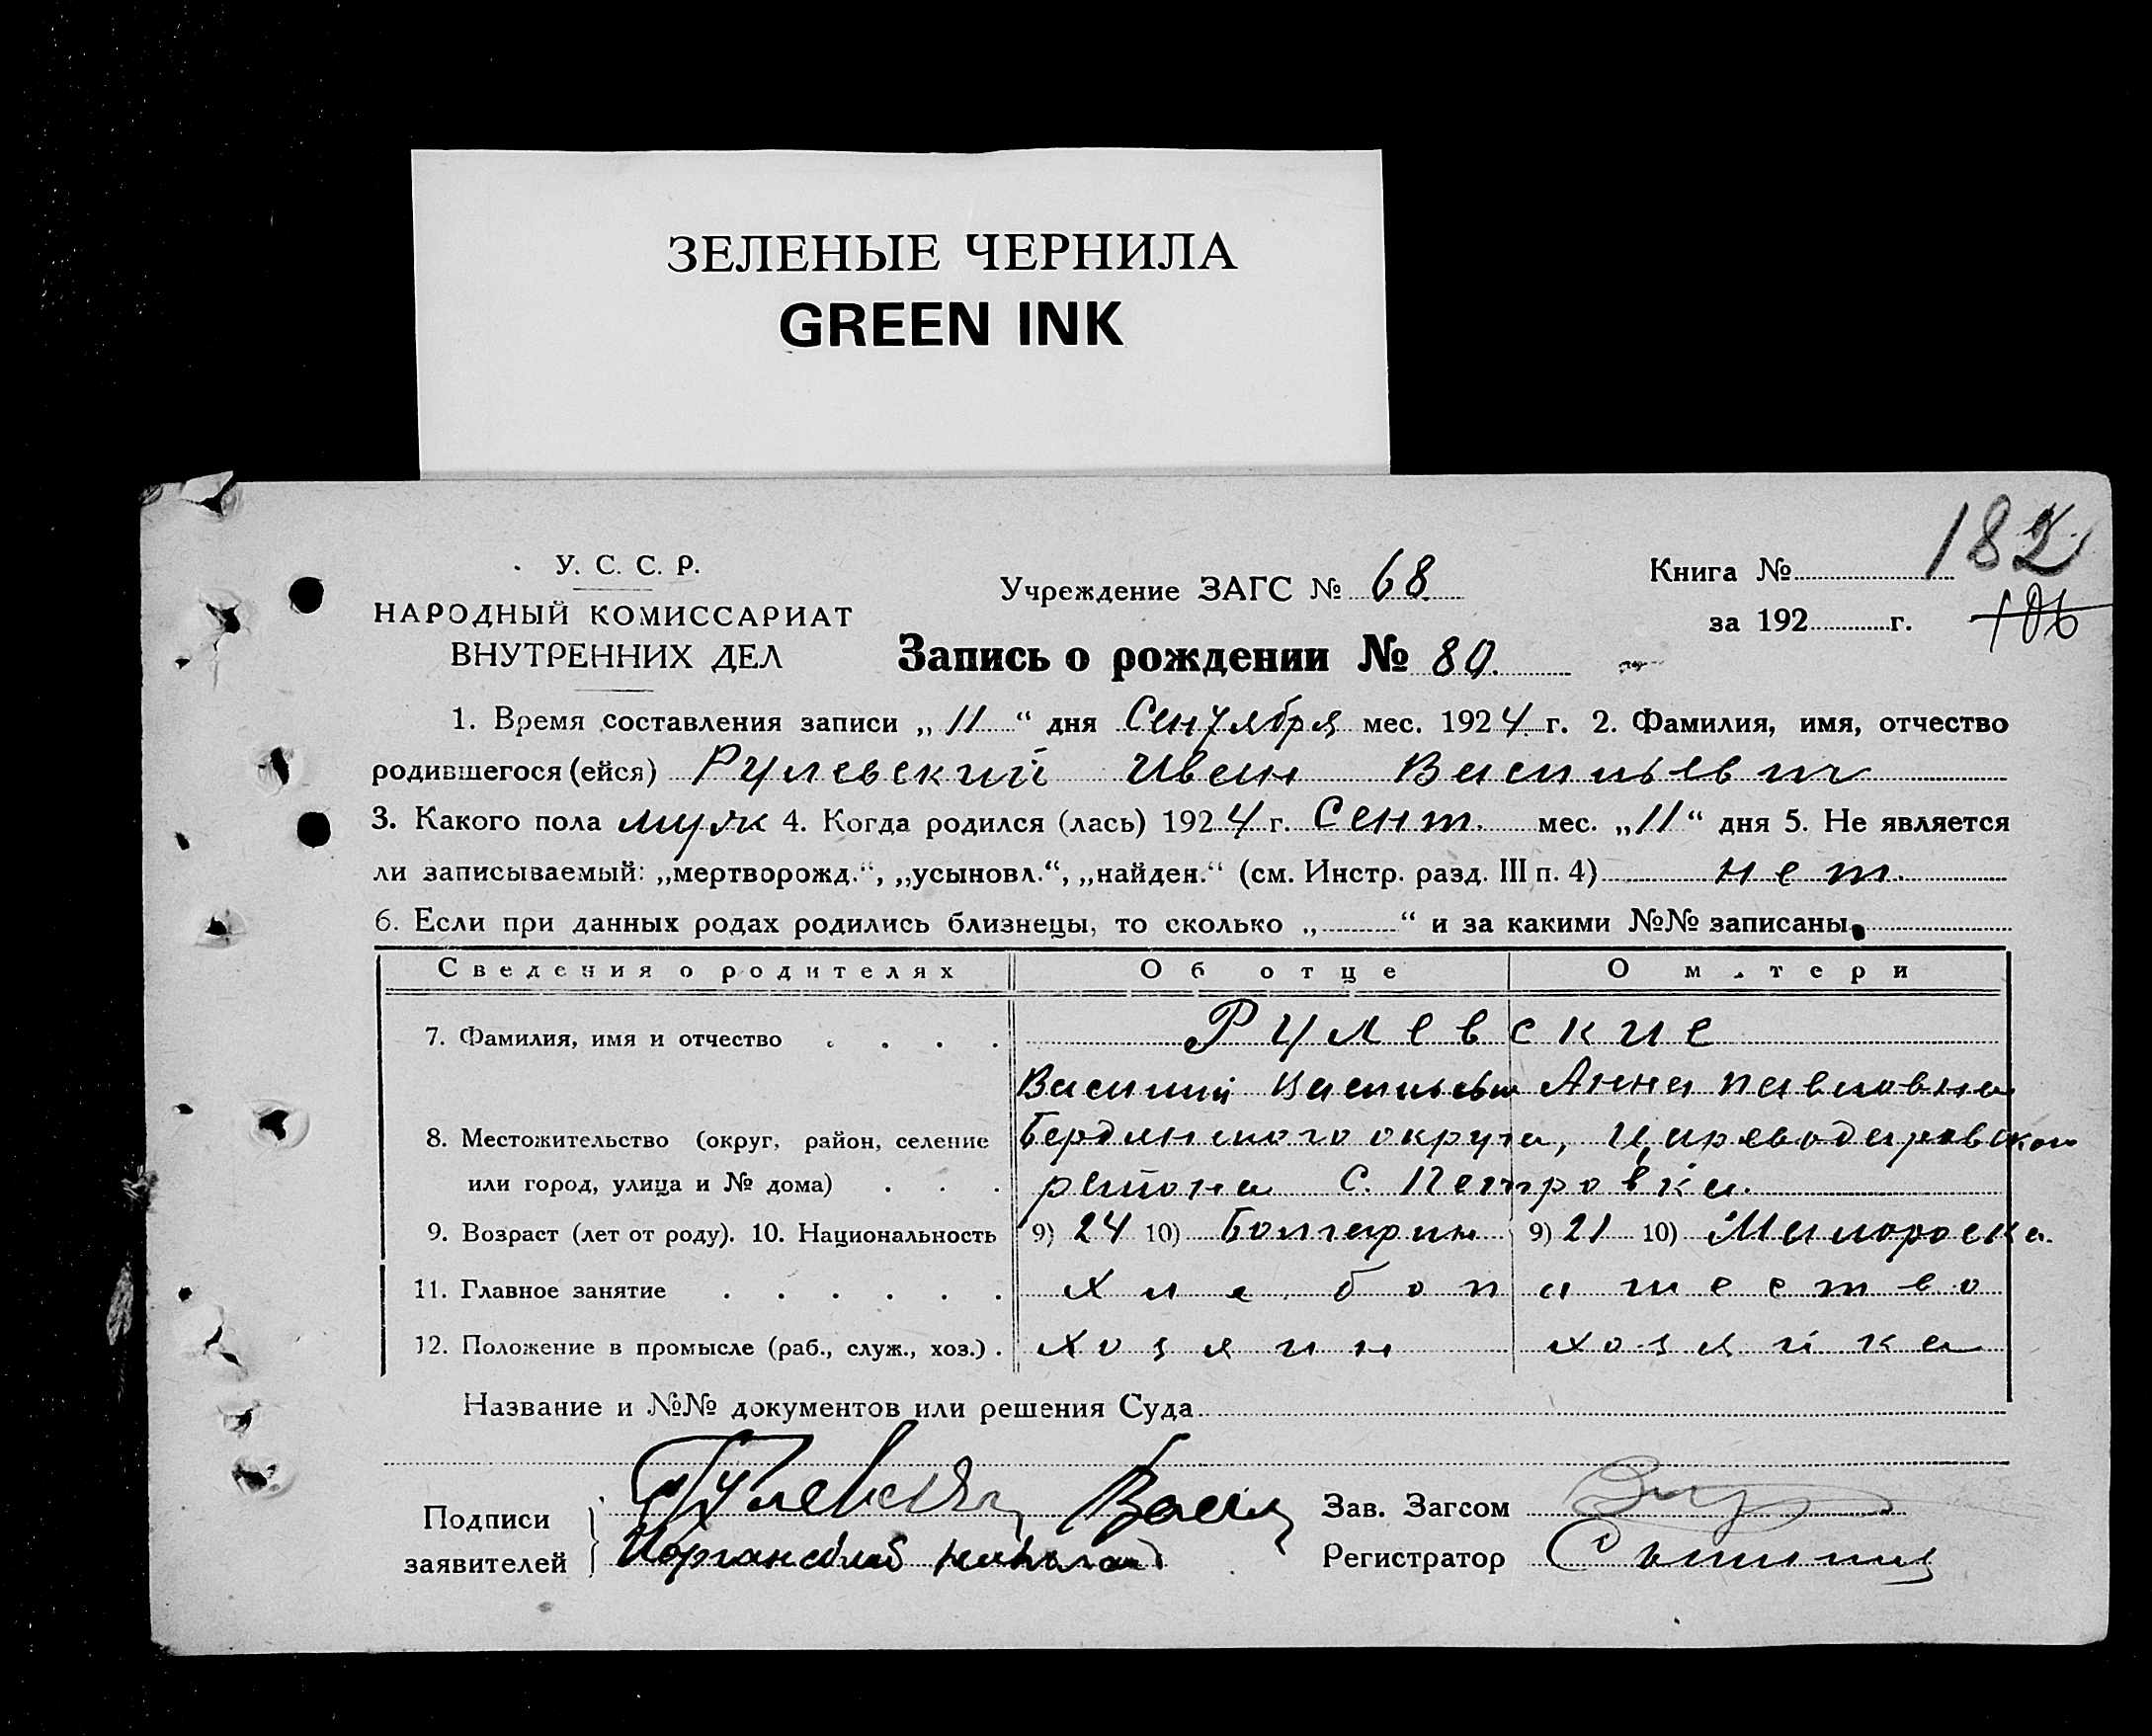 ЗЕЛЕНЫЕ ЧЕРНИЛА
GREEN INK
182
У. С. С. Р.
Учреждение ЗАГС № 68
Книга №
НАРОДНЫЙ КОМИССАРИАТ
за 192 г. 106
ВНУТРЕННИХ ДЕЛ
Запись о рождении № 80.
1. Время составления записи „11“ дня Сентября мес. 1924 г. 2. Фамилия, имя, отчество
родившегося (ейся) Рулевский Иван Васильевич
3. Какого пола муж 4. Когда родился (лась) 1924 г. Сент. мес. „11“ дня 5. Не является
ли записываемый: „мертворожд.“, „усыновл.“, „найден.“ (см. Инстр. разд. III п. 4) нет.
6. Если при данных родах родились близнецы, то сколько „ “ и за какими №№ записаны
Сведения о родителях Об отце О м.тери
7. Фамилия, имя и отчество . . . . Рулевские
Василий Васильев Анна Павловна
8. Местожительство (округ, район, селение Бердянского округа, Цареводаровского
или город, улица и № дома) . . . района С. Петровка.
9. Возраст (лет от роду). 10. Национальность 9) 24 10) Болгарин 9) 21 10) Малороска.
11. Главное занятие . . . . . . хлебопашество
12. Положение в промысле (раб., служ., хоз.) . хозяин хозяйка
Название и №№ документов или решения Суда
Подписи Рулевский Васил Зав. Загсом
заявителей Николай Регистратор